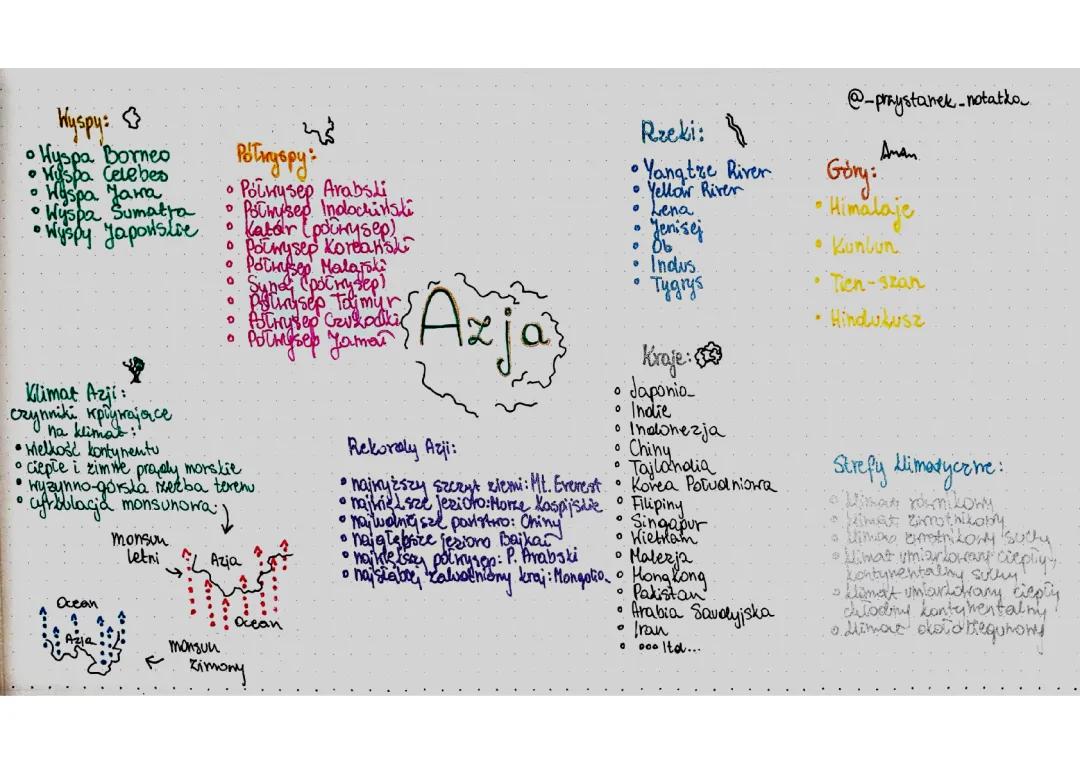 @-przystanek-notatka
Wyspy:
• Wyspa Borneo
• Wyspa Celebes
• Wyspa Jawa
• Wyspa Sumatra
• Wyspy Japońskie
Półwyspy:
• Półwysep Arabski
• Półwysep Indochiński
• Katar (półwysep)
• Półwysep Koreański
• Półwysep Malajski
• Synaj (półwysep)
• Półwysep Tajmyr
• Półwysep Czukocki
• Półwysep Jamał
Azja
Rzeki:
• Yangtze River
• Yellow River
• Lena
• Jenisej
• Ob
• Indus
• Tygrys
Góry:
• Himalaje
• Kunlun
• Tien-szan
• Hindukusz
Klimat Azji:
czynniki wpływające
na klimat:
• wielkość kontynentu
• ciepłe i zimne prądy morskie
• wyżynno-górska rzeźba terenu
• cyrkulacja monsunowa
monsun
letni
Azja
Ocean
Ocean
Azja
monsun
zimowy
Rekordy Azji:
• najwyższy szczyt ziemi: Mt. Everest
• największe jezioro: Morze Kaspijskie
• najludniejsze państwo: Chiny
• najgłębsze jezioro Bajkał
• największy półwysep: P. Arabski
• najsłabiej zaludniony kraj: Mongolia
Kraje:
• Japonia
• Indie
• Indonezja
• Chiny
• Tajlandia
• Korea Południowa
• Filipiny
• Singapur
• Wietnam
• Malezja
• Hongkong
• Pakistan
• Arabia Saudyjska
• Iran
• ... Itd...
Strefy klimatyczne:
• klimat równikowy
• klimat zwrotnikowy
• klimat zwrotnikowy suchy
• klimat umiarkowany ciepły,
kontynentalny suchy
• klimat umiarkowany ciepły
chłodny kontynentalny
• klimat okołobiegunowy